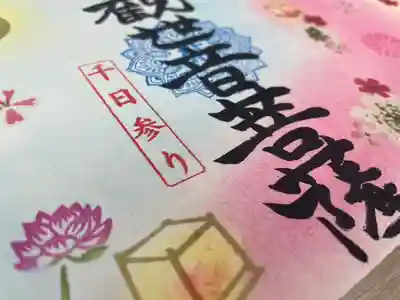 観世音菩薩
千日参り